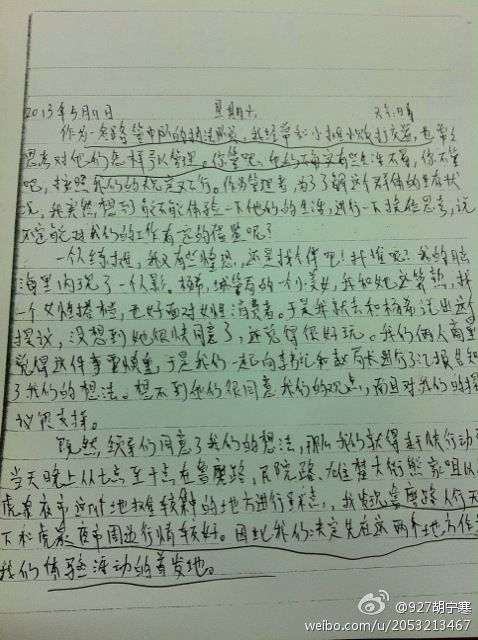 2013年5月11日 星期六 天气:晴
作为一名路管中队的执法队员,我经常和小摊小贩打交道,也常常
思考对他们怎样予以管理。你管吧,他们不每家有些生活不易,你不管
吧,按照我们的规定又不行。作为管理者,为了了解这个群体的生存状
况,我突然想到能不能体验一下他们的生活,进行一下换位思考,说
不定能对我们的工作有定的借鉴呢?
一个人练摊,我又有些惶恐,还是找个伴吧!找谁呢?我的脑
海里闪现了一个人影,杨希,城管有的一个小美女,我和她还算熟,找
一个女性搭档,也好面对女性消费者。于是我就去和杨希说出这个
提议,没想到她很快同意了,还觉得很好玩。我们俩人商量
觉得这件事要慎重,于是我们一起向书记和赵局长进行了汇报告知
了我们的想法。想不到他们很同意我们的观点,而且对我们的提
议很支持。
既然,领导们同意了我们的想法,那么我们就得赶快行动
当天晚上从七点至十点在鲁磨路,民院路
虎泉夜市这几个地摊较集中的地方进行
下和虎泉夜市周边行情较好。因此我们决定先在这两个地方作为
我们体验活动的首发地。
@927胡宁寒
weibo.com/u/2053213467